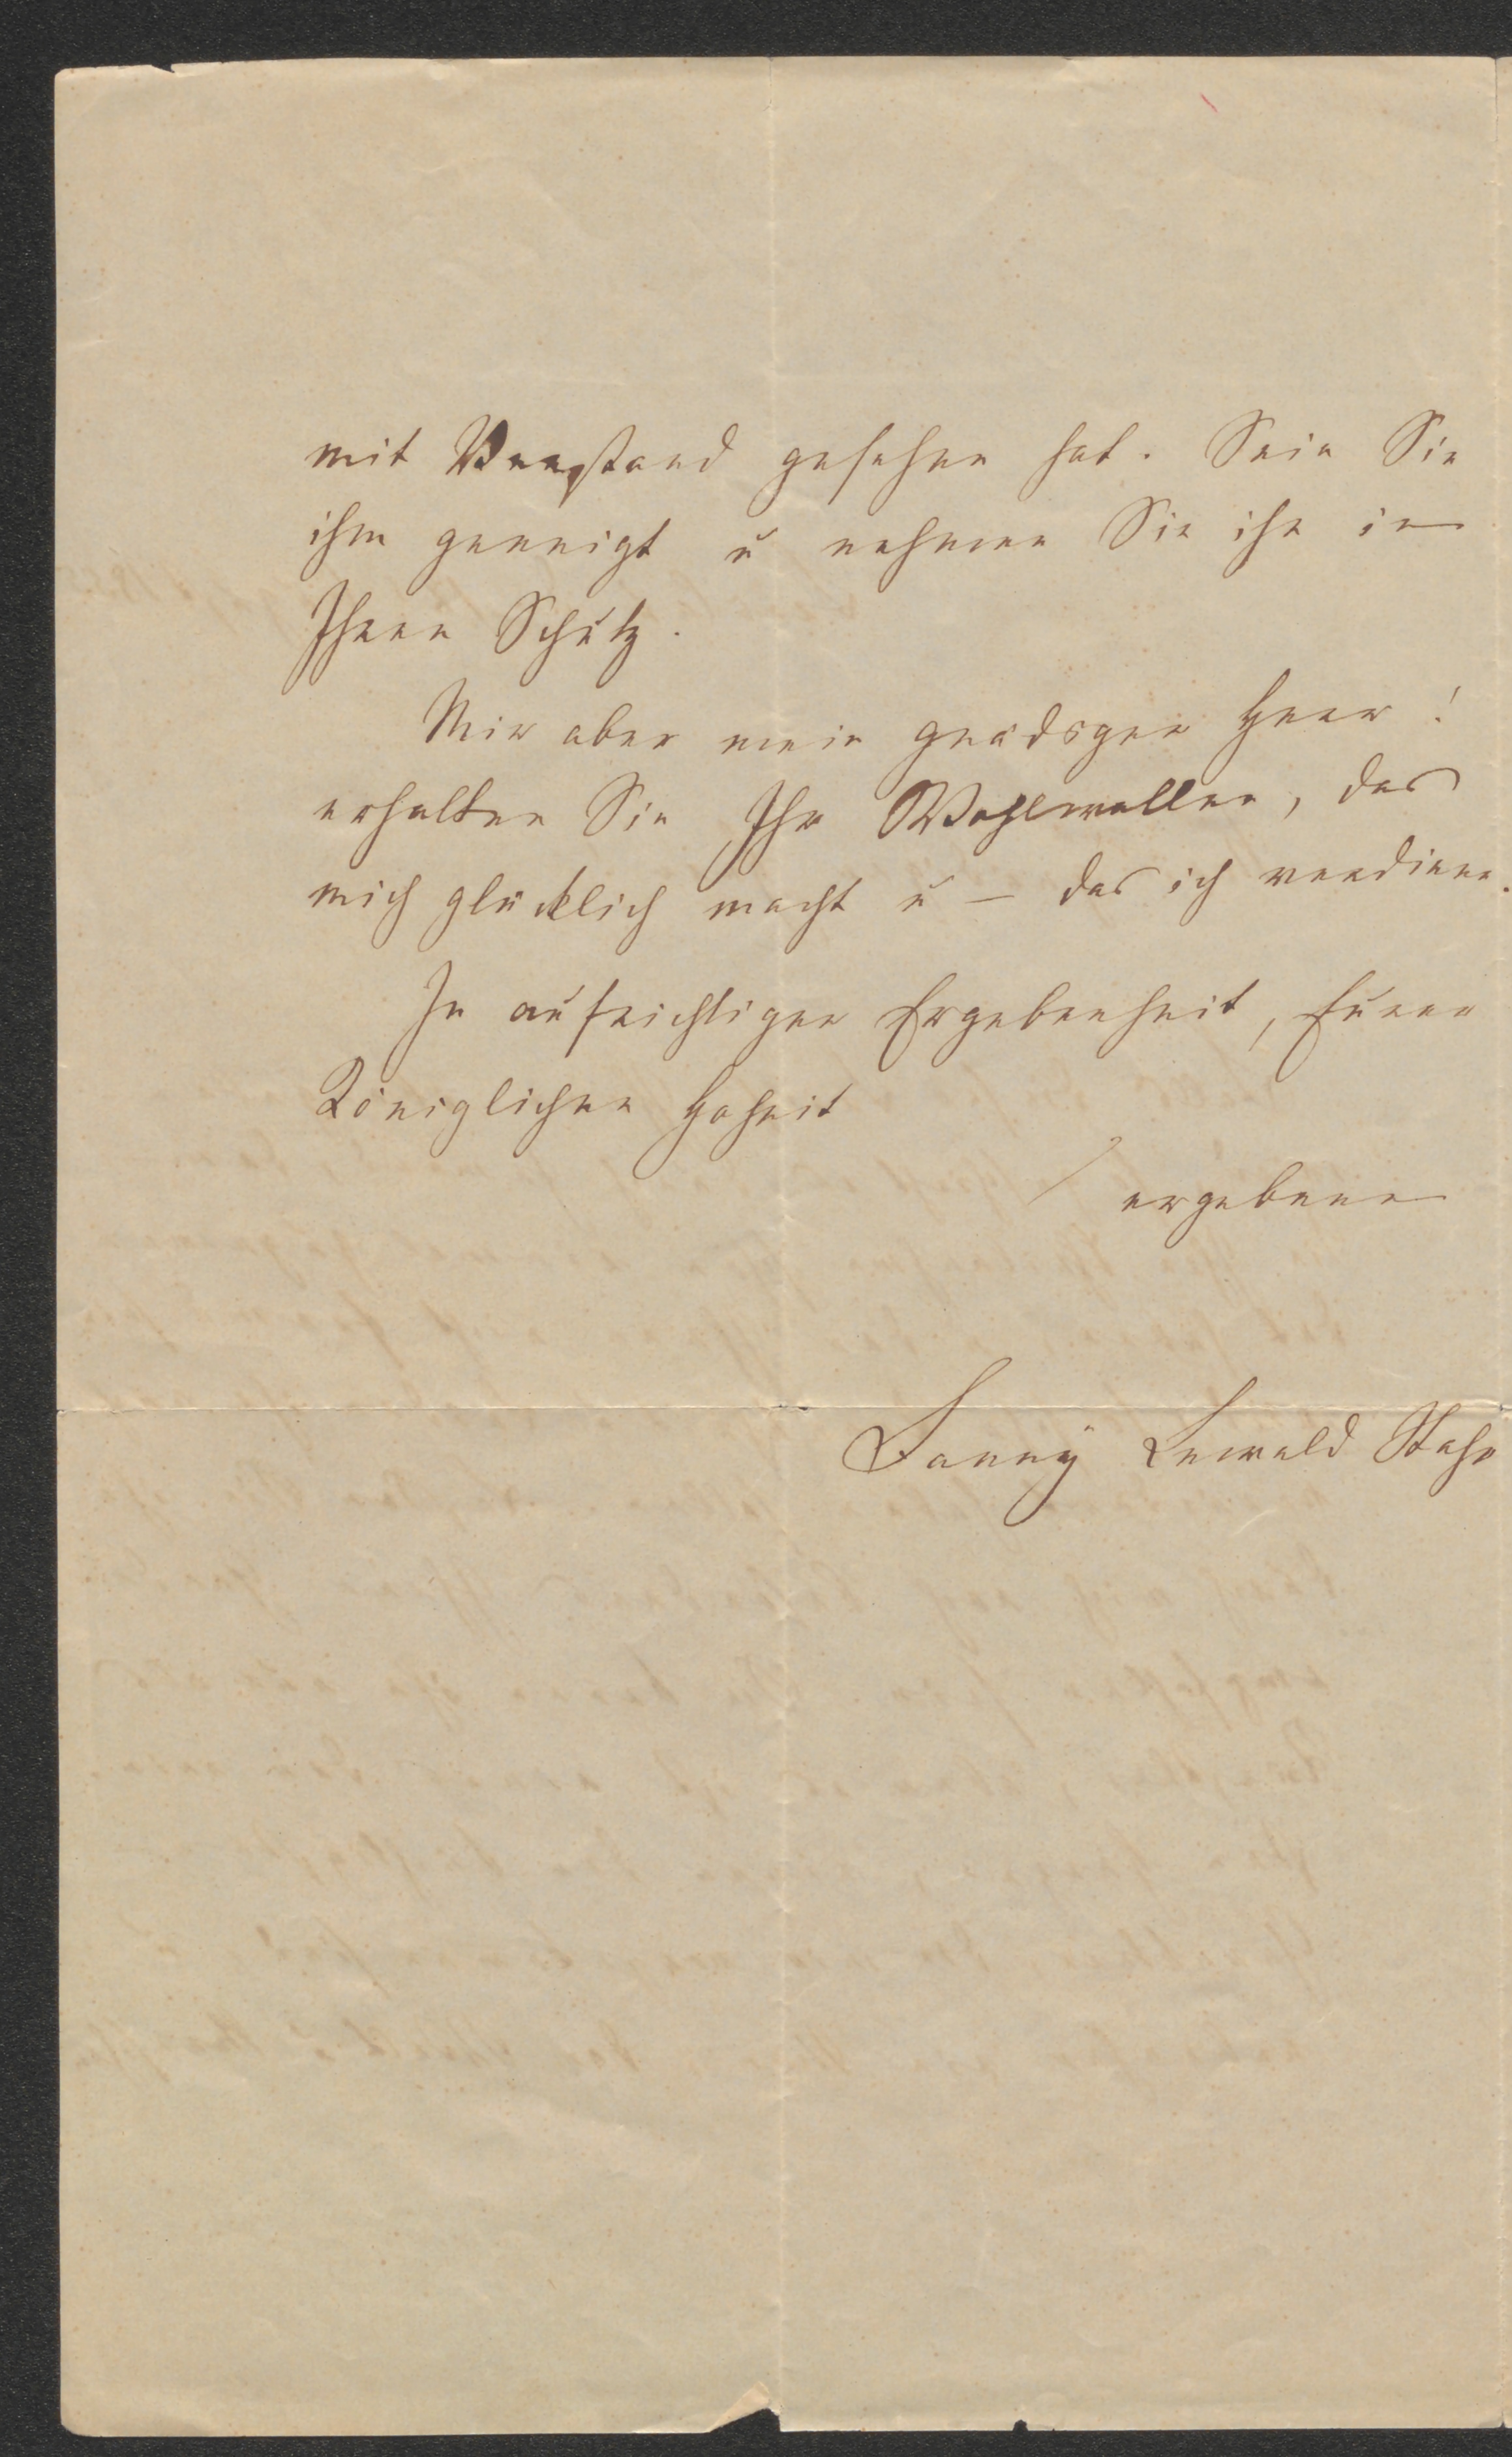 mit Verstand gesehen hat. Sein Sie
ihm geneigt u nehmen Sie ihn in
Ihren Schutz.
Mir aber mein gnädger Herr!
erhalten Sie Ihr Wohlwollen, das
mich glücklich macht u – das ich verdiene.
In aufrichtiger Ergebenheit, Eurer
Königlichen Hoheit
ergebene
Fanny Lewald Stahr